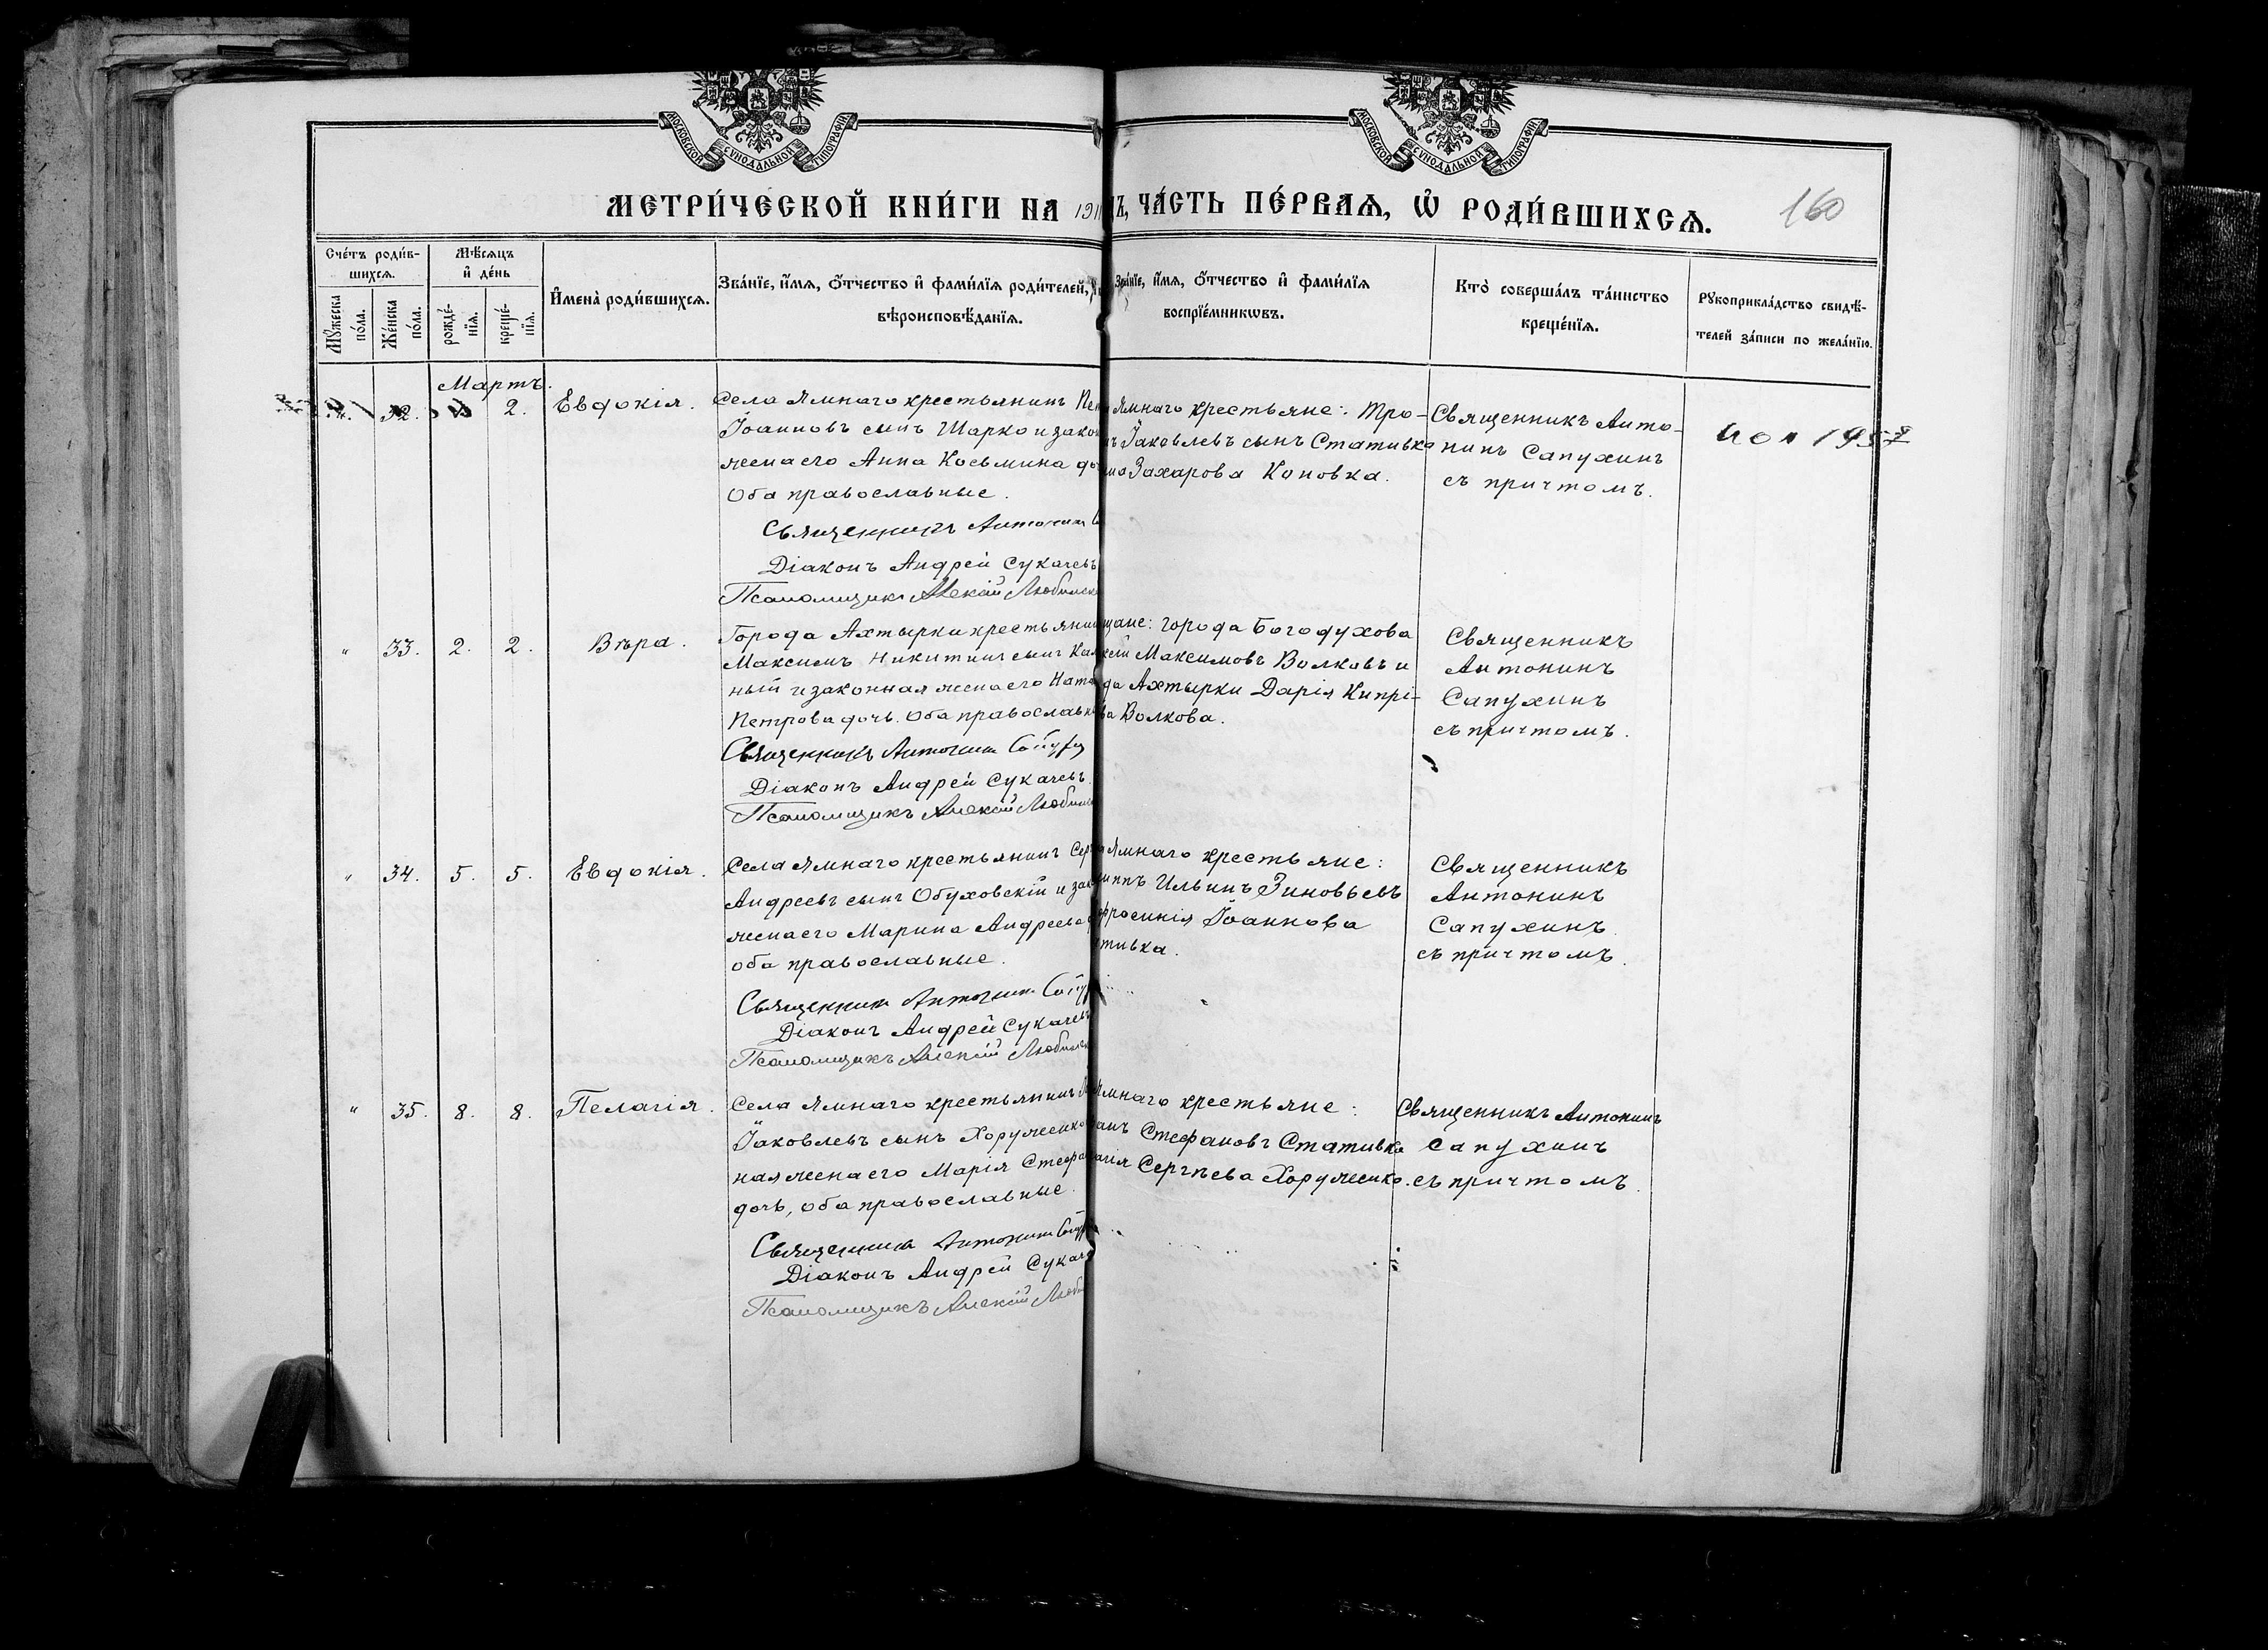 МОСКОВСКОЙ СУНОДАЛЬНОЙ ТИПОГРАФІИ
МОСКОВСКОЙ СУНОДАЛЬНОЙ ТИПОГРАФІИ
МЕТРИ́ЧЕСКОЙ КНИ́ГИ НА 191
Ъ, ЧА́СТЬ ПЕ́РВАѦ, Ѡ҆ РОДИ́ВШИХСѦ.
160
Сче́тъ роди́в-
шихсѧ.
Мѣ́сѧцъ
и҆ де́нь
Мꙋ́жеска
по́ла.
Же́нска
по́ла.
рожде́-
нїѧ.
креще́-
нїѧ.
И҆мена̀ роди́вшихсѧ.
Зва́нїе, и҆́мѧ, ѻ҆́тчество и҆ фами́лїѧ роди́телей,
вѣроисповѣ́данїѧ.
Зва́нїе, и҆́мѧ, ѻ҆́тчество и҆ фами́лїѧ
воспрїе́мникѡвъ.
Кто̀ соверша́лъ та́инство
креще́нїѧ.
Рꙋкоприкла́дство свидѣ́-
телей за́писи по жела́нїю.
Мартъ.
32.
2.
Евдокія.
Села Ямнаго крестьянинъ
Іоанновъ сынъ Шарко и закон
жена его Анна Косьмина до
Оба православные.
Священникъ Антонин
Діаконъ Андрей Сукачевъ
Псаломщикъ Алексій Любимск
Ямнаго крестьяне: Тро-
Іаковлевъ сынъ Стативка
Захарова Коновка.
Священникъ Анто-
нинъ Сапухинъ
съ причтомъ.
"
33.
2.
2.
Вѣра.
Города Ахтырки крестьянин
Максимъ Никитинъ сынъ Кал
ный и законная жена его Ната
Петрова дочь. Оба православн
Священникъ Антонин Сапух
Діаконъ Андрей Сукачевъ.
Псаломщикъ Алексій Любимс
щане: города Богодухова
ксій Максимовъ Волковъ и
да Ахтырки Дарія Кипрі-
ва Волкова.
Священникъ
Антонинъ
Сапухинъ
съ причтомъ.
"
34.
5.
5.
Евдокія.
Села Ямнаго крестьянинъ Сер
Андреевъ сынъ Обуховскій и зак
жена его Марина Андреева
оба православные.
Священникъ Антонин Сапух
Діаконъ Андрей Сукачевъ
Псаломщикъ Алексій Любимск
Ямнаго крестьяне:
иппъ Ильинъ Зиновьевъ
фросинія Іоаннова
тивка.
Священникъ
Антонинъ
Сапухинъ
съ причтомъ.
"
35.
8.
8.
Пелагія.
Села Ямнаго крестьянинъ
Іаковлевъ сынъ Хоружено
ная жена его Марія Стефа
дочь, оба православные.
Священникъ Антонин Сапух
Діаконъ Андрей Сукач
Псаломщикъ Алексій Люби
Ямнаго крестьяне:
анъ Стефановъ Стативка
агія Сергѣева Хоруженко.
Священникъ Антонинъ
Сапухинъ
съ причтомъ.